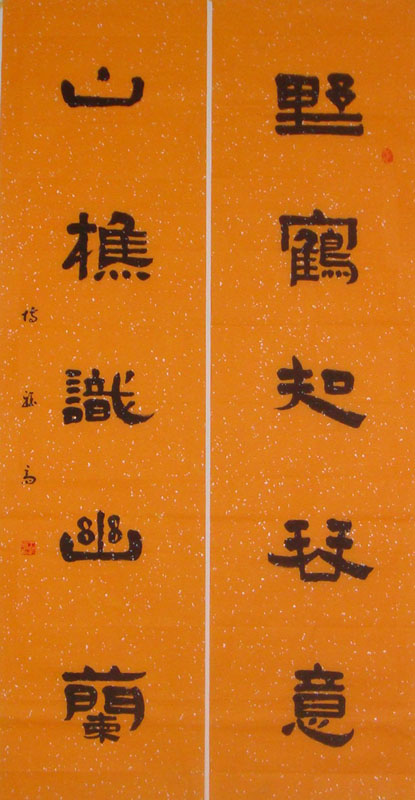 野鶴知琴意
山樵識幽蘭